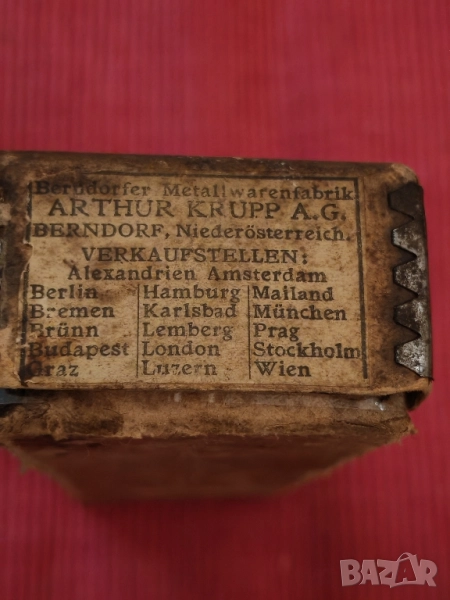 Berndorfer Metallwarenfabrik
ARTHUR KRUPP A.G.
BERNDORF, Niederösterreich.
VERKAUFSTELLEN:
Alexandrien Amsterdam
Berlin Hamburg Mailand
Bremen Karlsbad München
Brünn Lemberg Prag
Budapest London Stockholm
Graz Luzern Wien
BAZAR